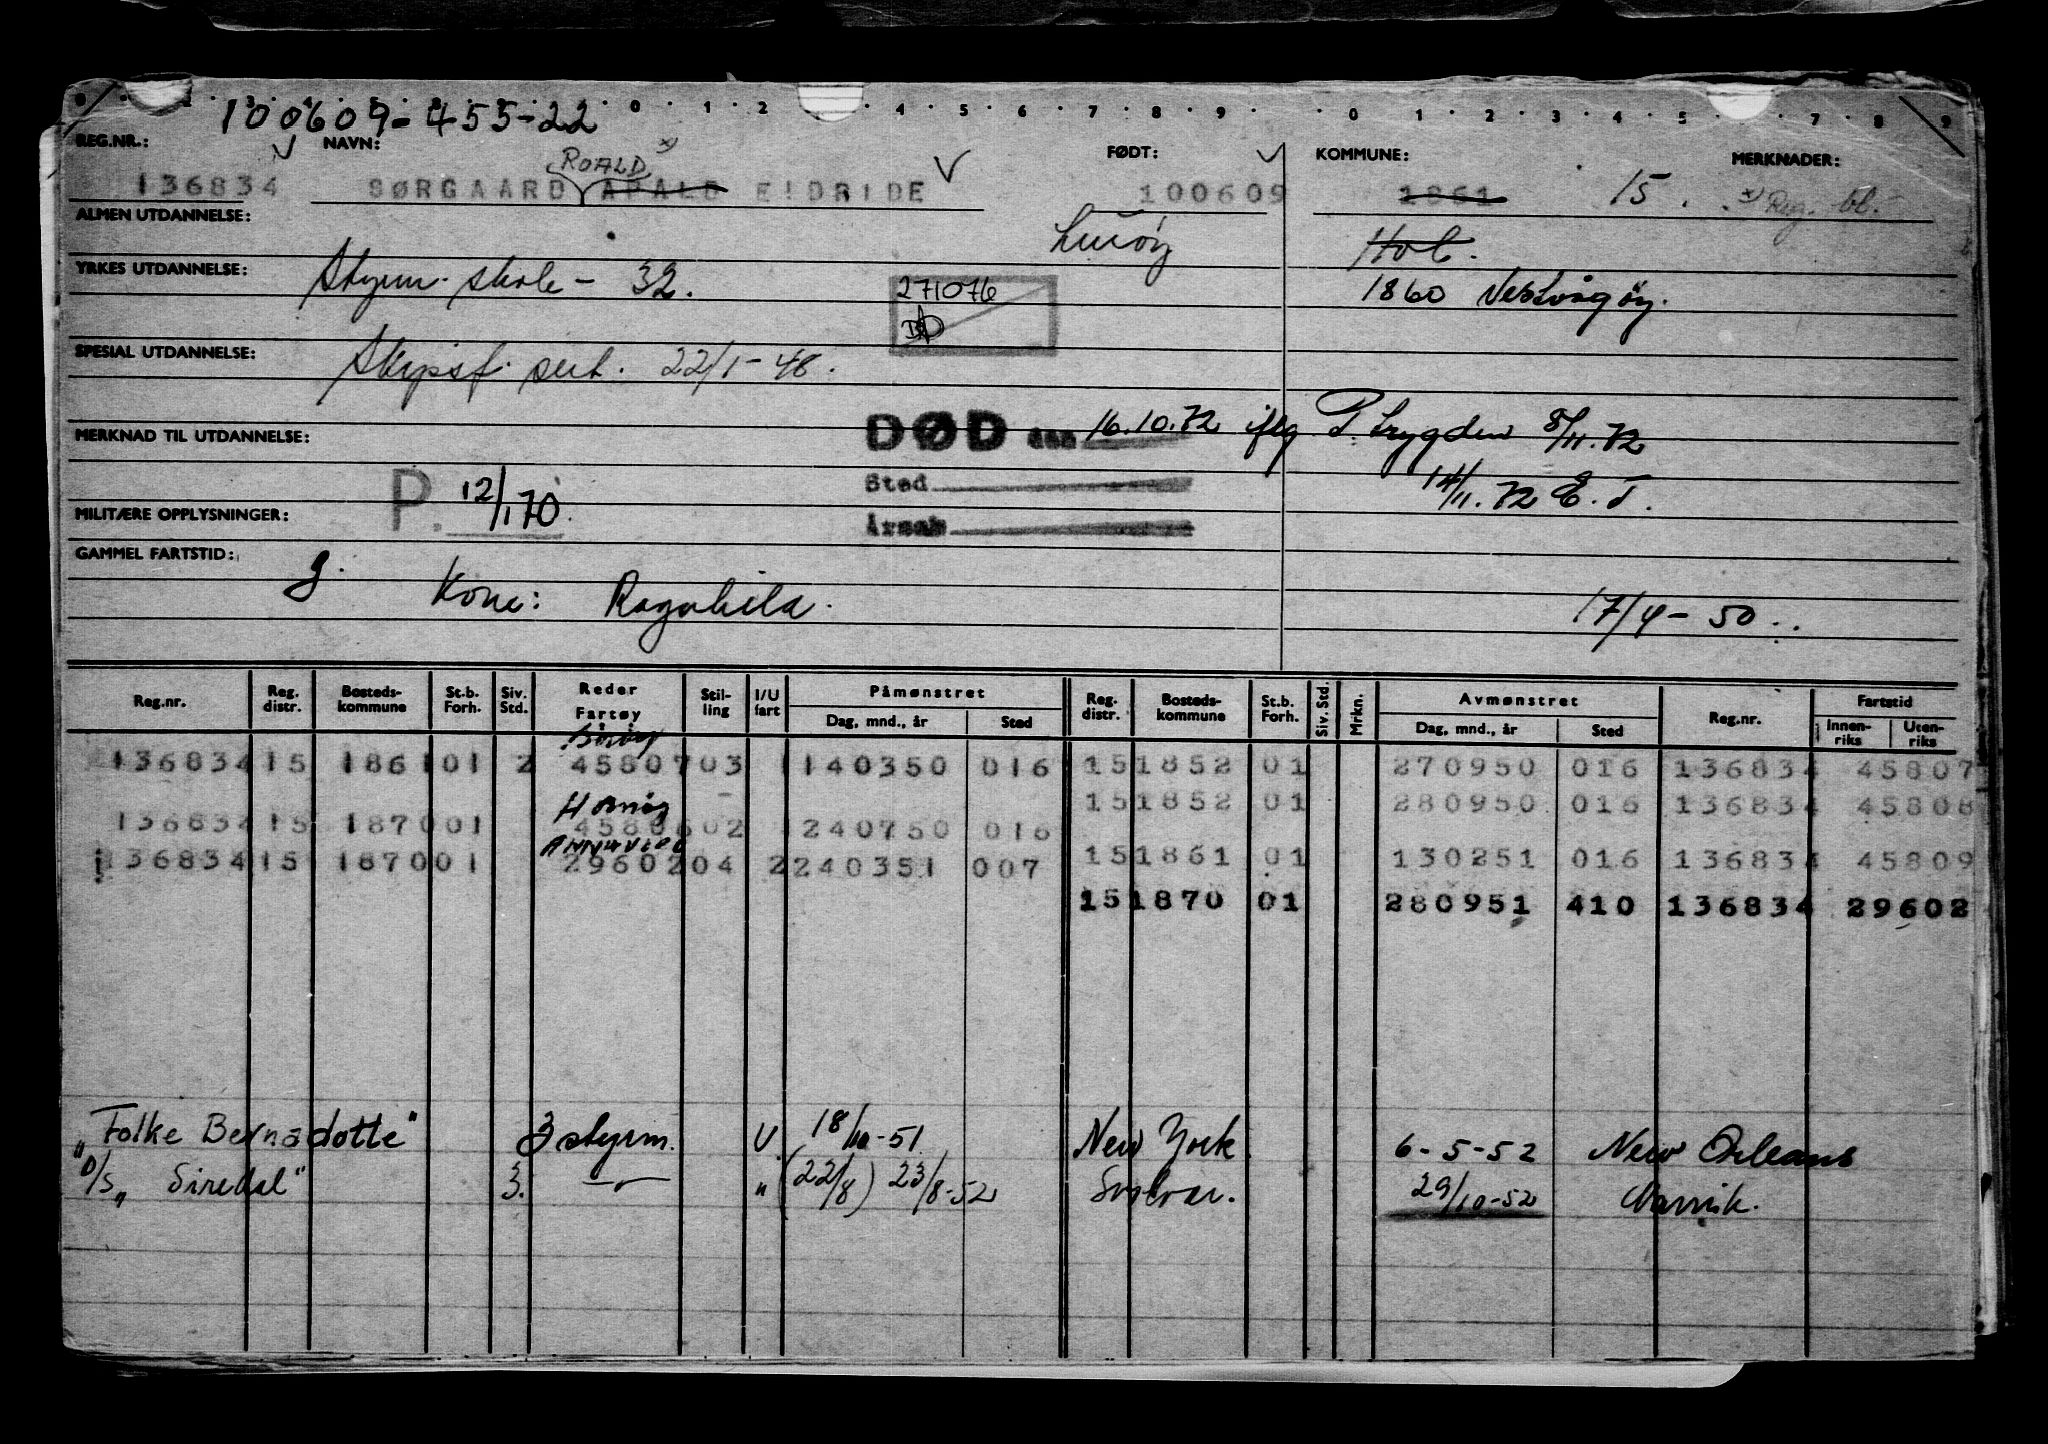 100609-455-22
REG.NR.: NAVN: FØDT: KOMMUNE: MERKNADER:
ROALD x)
136834 SØRGAARD ARALD EIDRIDE 100609 1861 15. x) Reg. bl.
ALMEN UTDANNELSE: Lurøy Hol.
YRKES UTDANNELSE: Styrm. skole - 32. 1860 Vestvågøy.
271076
SPESIAL UTDANNELSE: Skipsf. sert. 22/1-46.
MERKNAD TIL UTDANNELSE: DØD den 16.10.72 iflg P. trygden 8/11.72
Sted 14/11.72 E.T.
MILITÆRE OPPLYSNINGER: P. 12/1 70. Årsak
GAMMEL FARTSTID:
g. Kone: Ragnhild. 17/4-50.
Reg.nr. Reg. distr. Bosteds-kommune St.b. Forh. Siv. Std. Reder Fartøy Stil-ling I/U fart Påmønstret Dag, mnd., år Sted Reg. distr. Bosteds-kommune St.b. Forh. Siv. Std. Mrkn. Avmønstret Dag, mnd., år Sted Reg.nr. Fartstid Innen-riks Uten-riks
136834 15 1861 01 2 45807 03 1 140350 016 15 1852 01 270950 016 136834 45807
15 1852 01 280950 016 136834 45808
136834 15 1870 01 45808 02 1 240750 016
15 1861 01 130251 016 136834 45809
136834 15 1870 01 29602 04 2 240351 007
15 1870 01 280951 410 136834 29602
"Folke Bernadotte" 3 styrm. U. 18/10-51 New York 6-5-52 New Orleans
D/S "Siredal" 3. -"- " (22/8) 23/8-52 Svolvær. 29/10-52 Narvik.